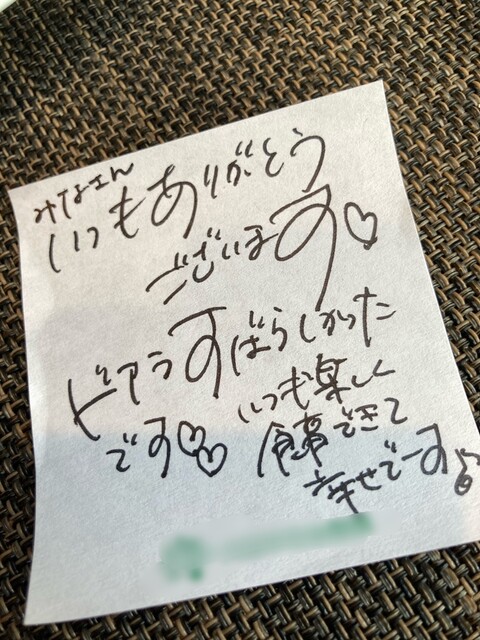 みなさん
いつもありがとう
ございます♡
ピアラすばらしかった
です♡♡
いつも楽しく
食事できて
幸せでーす♪